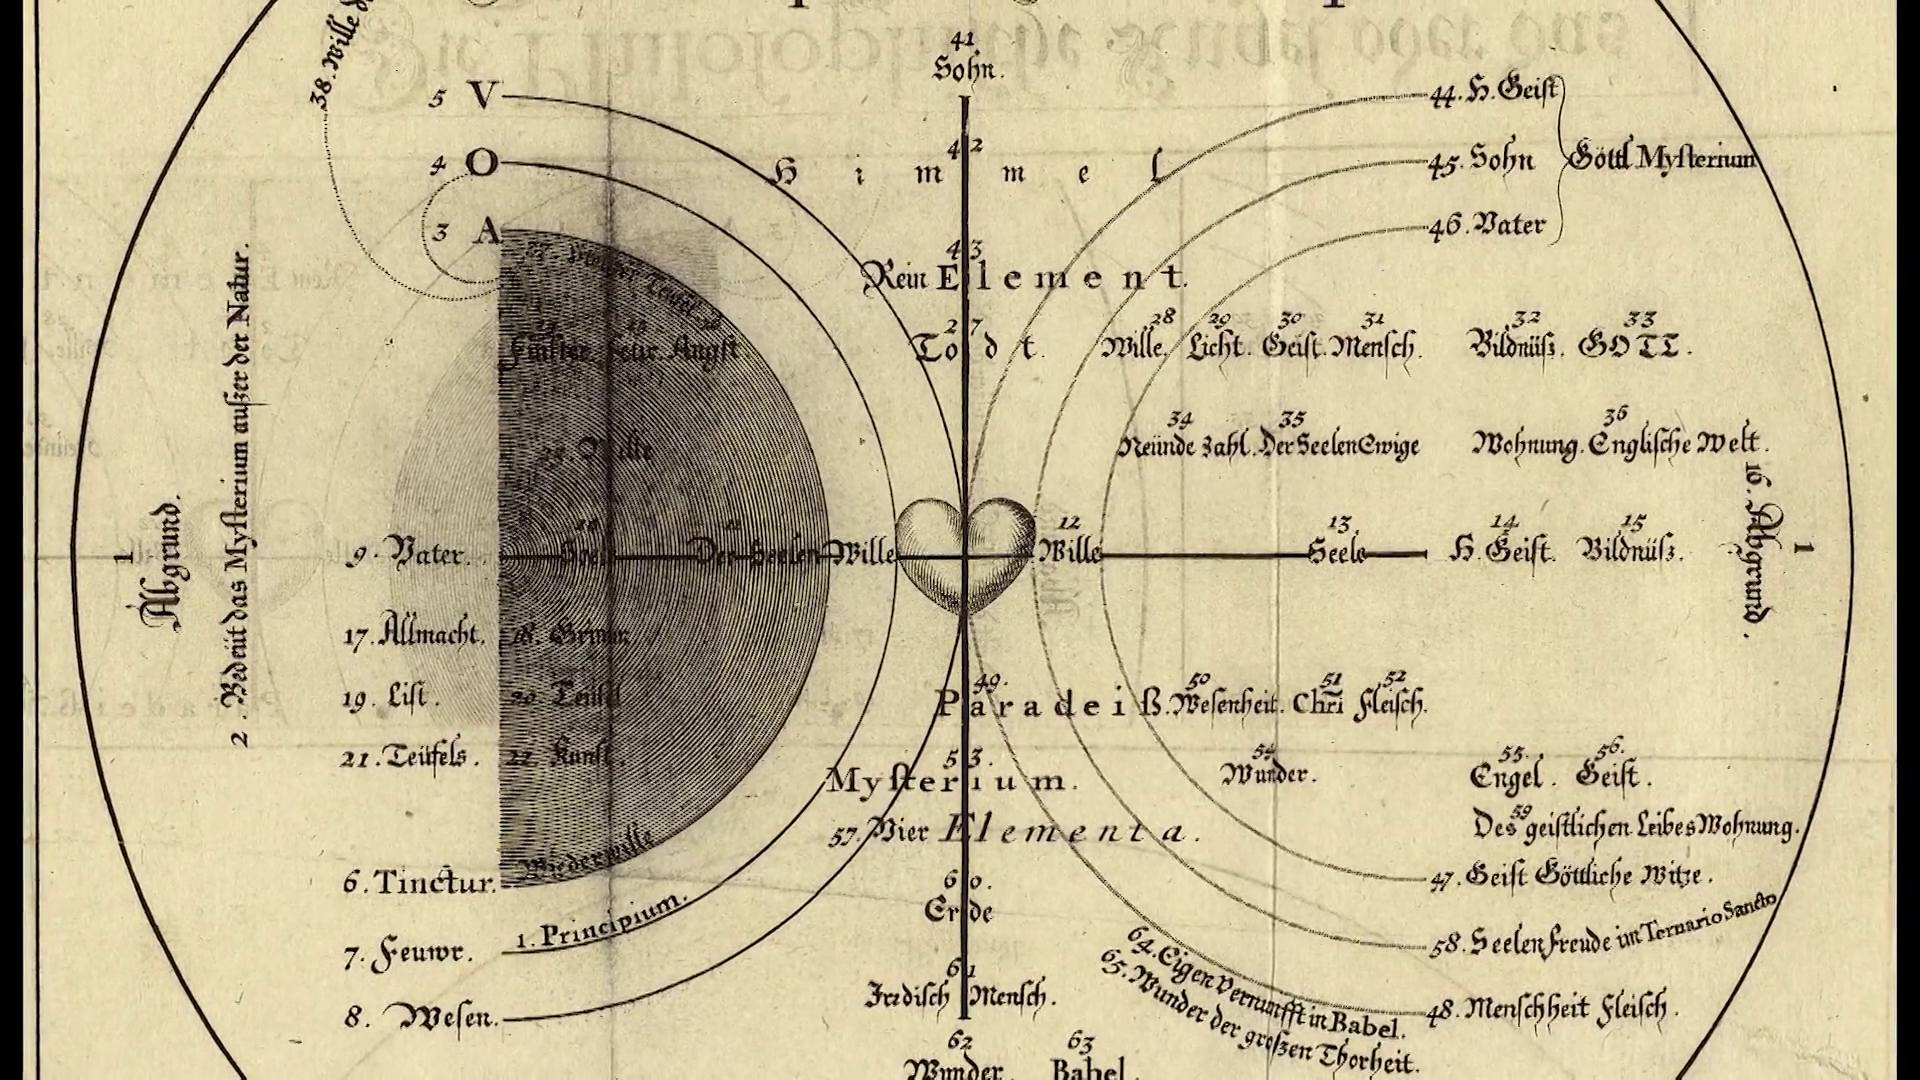 41
Sohn.
5 V
44. H. Geiſt
42
4 O
H i m m e l
45. Sohn
Göttl Myſterium
3 A
46. Vater
43
Rein Element.
38. Wille
27 28 29 30 31 32 33
Todt. Wille. Licht. Geiſt. Menſch. Bildnüſz. GOTT.
Finſter. Feur. Angſt.
34 35 36
Neünde Zahl. Der Seelen Ewige Wohnung. Engliſche Welt.
2. Bedeüt das Myſterium auſzer der Natur.
1
Abgrund.
12 13 14 15
9. Vater. Der Seelen Wille Wille Seele H. Geiſt. Bildnüſz.
16. Abgrund.
1
17. Allmacht. 18. Grimm
49. 50 51 52
19. Liſt. 20. Teüfel
Paradeiß. Weſenheit. Chri Fleiſch.
21. Teüfels. 22. Kunſt.
53. 54 55. 56.
Myſterium. Wunder. Engel. Geiſt.
57. Vier Elementa.
59
Des geiſtlichen Leibes Wohnung.
Wiederwille
6. Tinctur.
60.
Erde
47. Geiſt Göttliche Witze.
1. Principium.
7. Feuwr.
58. Seelen freude im Ternario Sancto
61
Irdiſch Menſch.
64. Eigen Vernunfft in Babel.
65. Wunder der groſzen Thorheit.
8. Weſen.
48. Menſchheit Fleiſch.
62 63
Wunder. Babel.